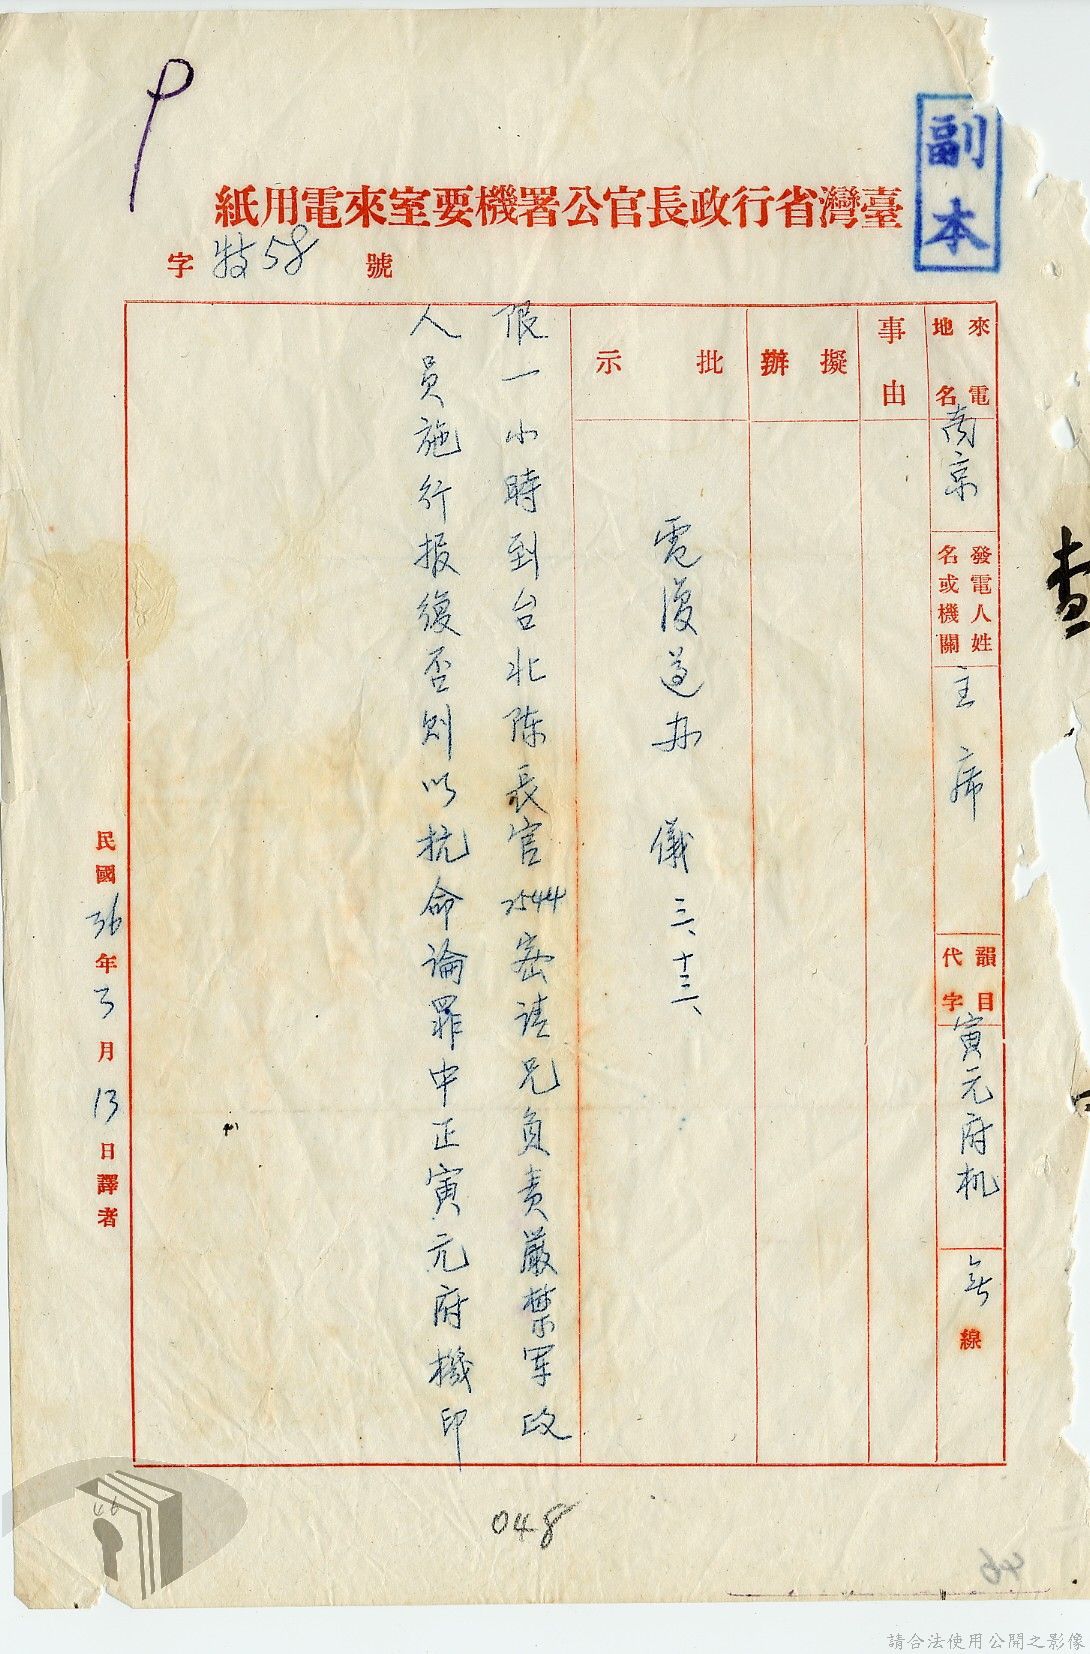 副本
臺灣省行政長官公署機要室來電用紙
字 特58 號
來電地名
南京
發電人姓名或機關
主席
韻目代字
寅元府机
無線
事由
擬辦
批示
電復遵办 儀 三、十三、
限一小時到台北陈長官2544密请兄負責嚴禁军政
人員施行报復否則以抗命論罪中正寅元府機印
民國36年3月13日譯者
048
46
46
查
請合法使用公開之影像